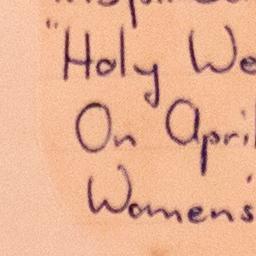 "Holy We
On April
Women's